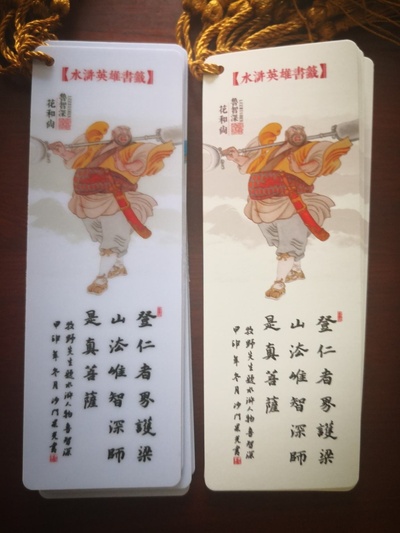 【水滸英雄書籤】
魯智深
花和尚
登仁者界護梁
山法唯智深師
是真菩薩
牧野先生繪水滸人物魯智深
年冬月沙門書
【水滸英雄書籤】
魯智深
花和尚
登仁者界護梁
山法唯智深師
是真菩薩
牧野先生繪水滸人物魯智深
年冬月沙門書